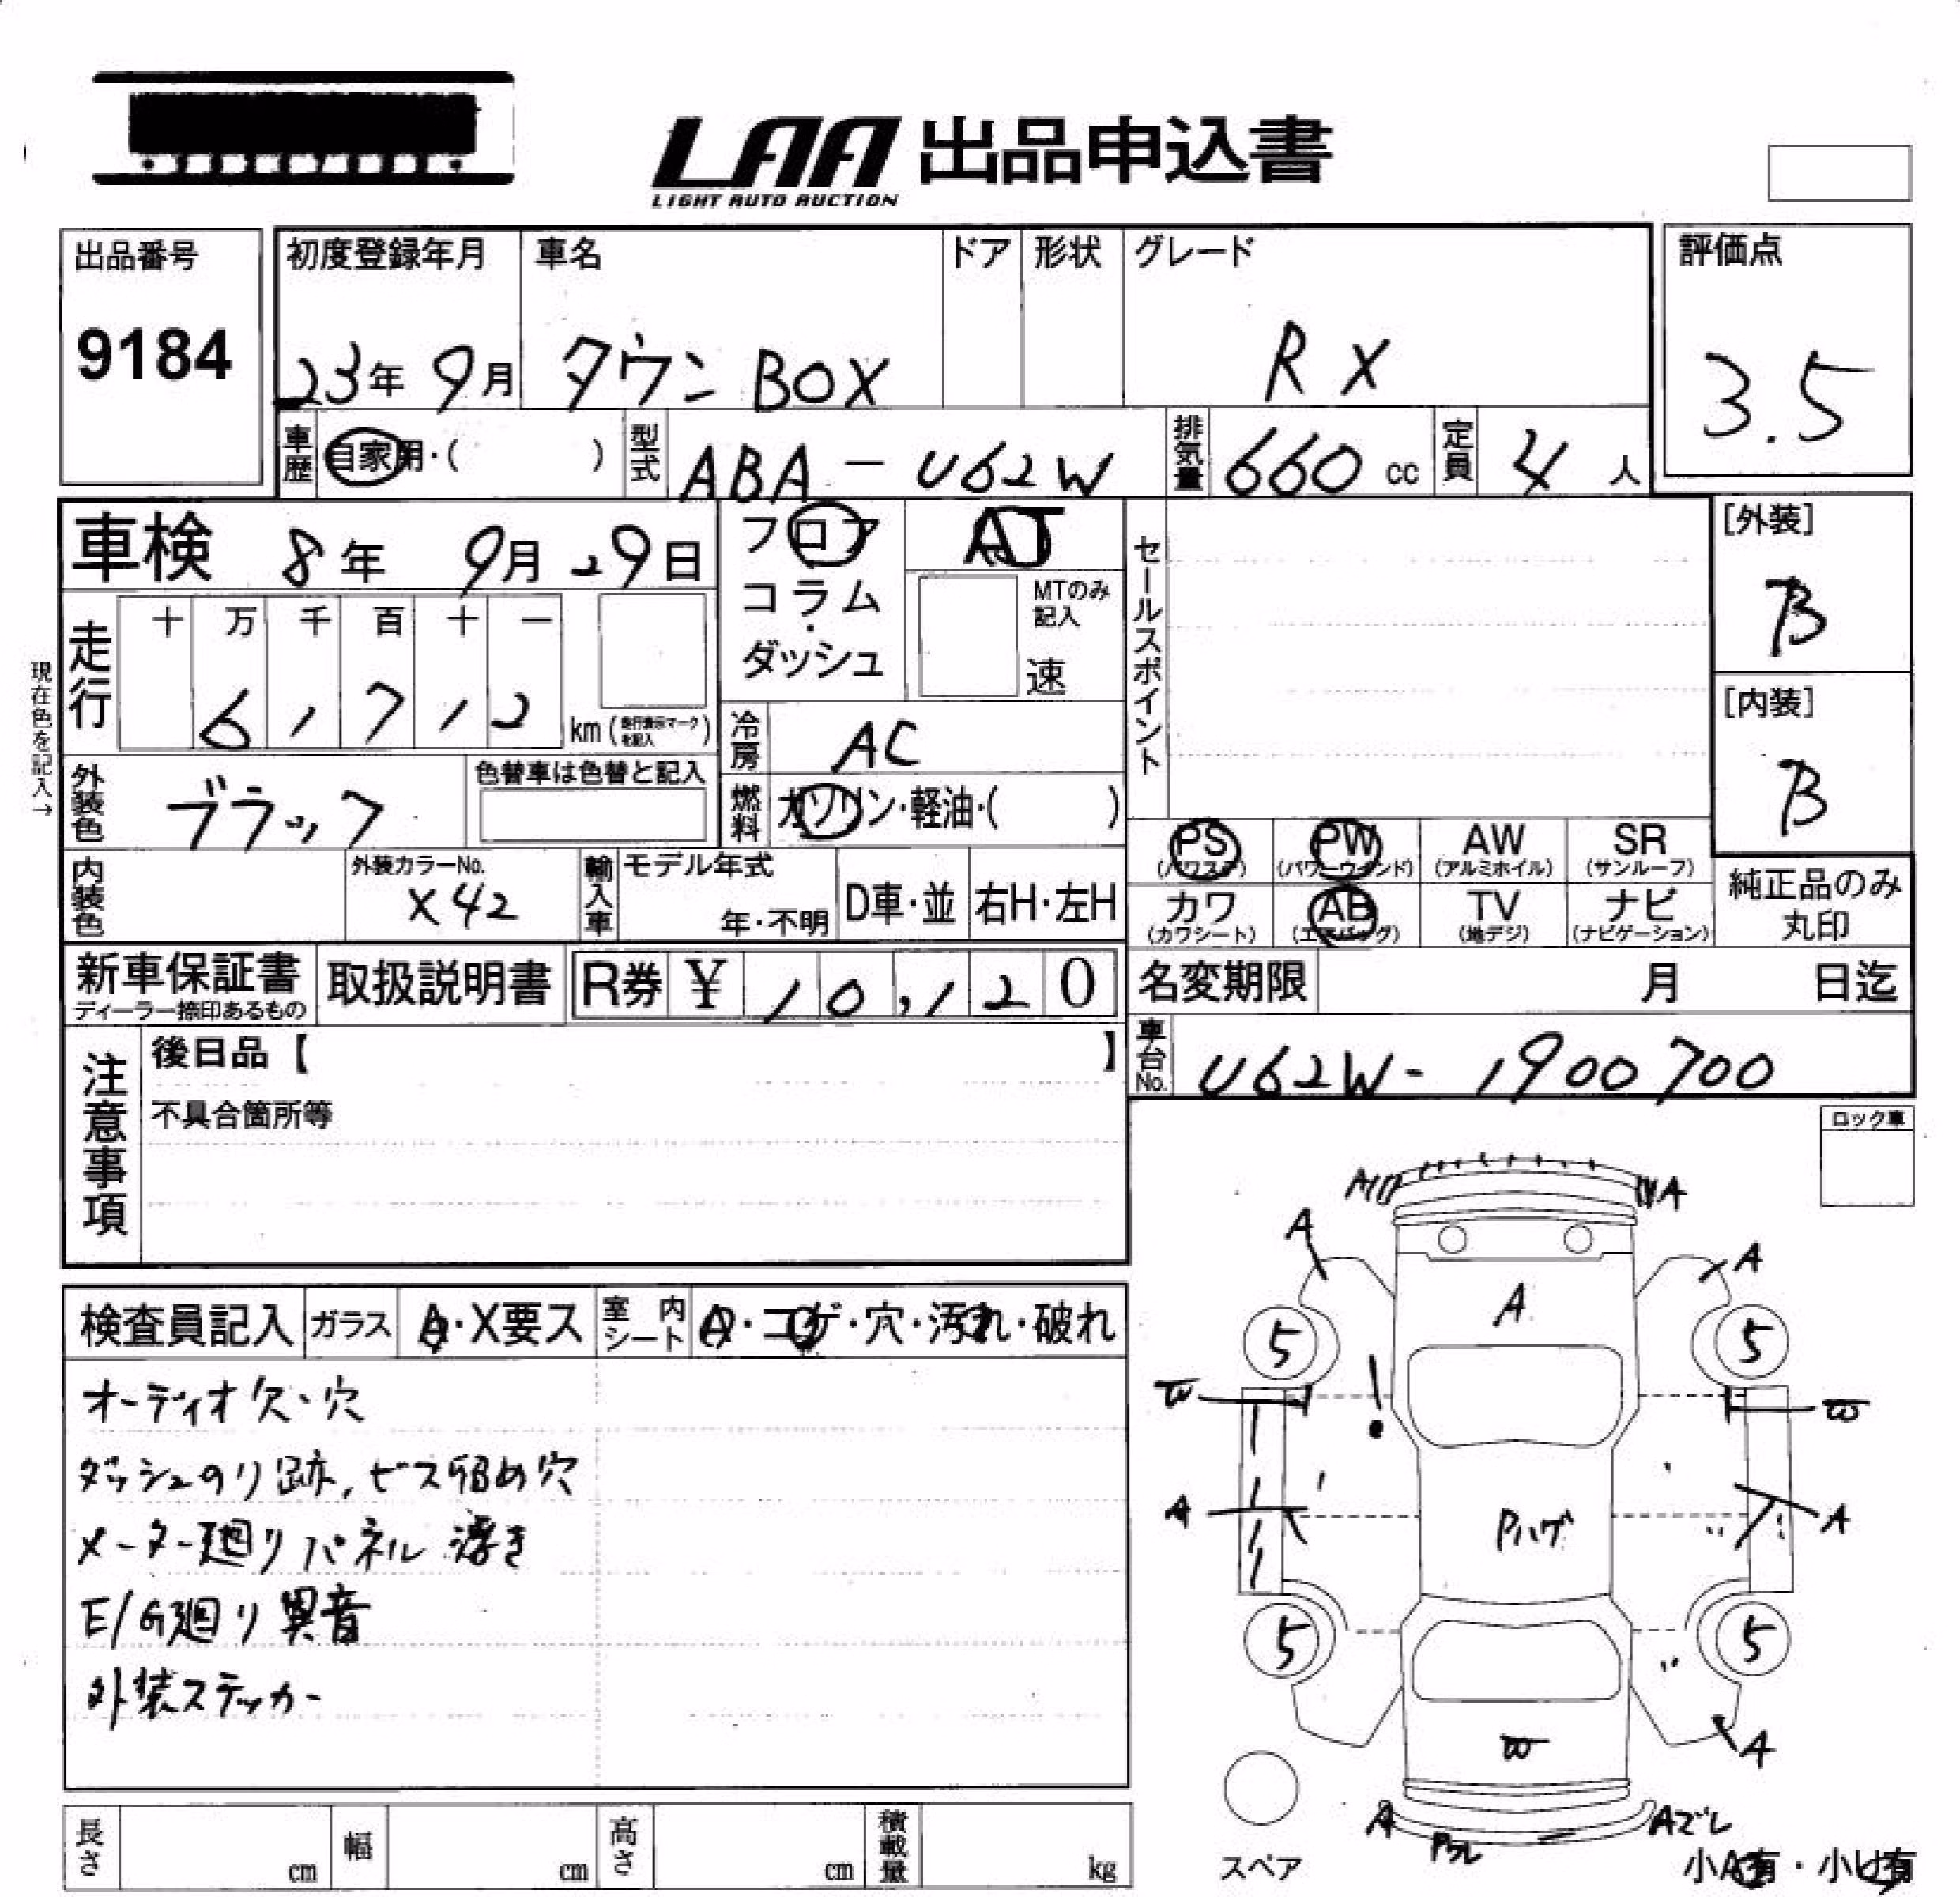 LAA 出品申込書
LIGHT AUTO AUCTION
出品番号
9184
初度登録年月
23年 9月
車名
タウンBOX
ドア
形状
グレード
RX
評価点
3.5
車歴
自家用・( )
型式
ABA-U62W
排気量
660 cc
定員
4 人
車検 8年 9月 29日
フロア
コラム
・
ダッシュ
AT
MTのみ
記入
速
セールスポイント
[外装]
B
[内装]
B
現在色を記入→
走行
十 万 千 百 十 一
6 1 7 1 2 km(走行表示マークを記入)
冷房
AC
外装色
ブラック
色替車は色替と記入
燃料
ガソリン・軽油・( )
PS
(パワステ)
PW
(パワーウインド)
AW
(アルミホイル)
SR
(サンルーフ)
カワ
(カワシート)
AB
(エアバッグ)
TV
(地デジ)
ナビ
(ナビゲーション)
純正品のみ
丸印
内装色
外装カラーNo.
X42
輸入車
モデル年式
年・不明
D車・並
右H・左H
新車保証書
ディーラー捺印あるもの
取扱説明書
R券 ¥ 10,120
名変期限 月 日迄
車台No.
U62W-1900700
注意事項
後日品【 】
不具合箇所等
ロック車
検査員記入
ガラス
A・X要ス
室内シート
A・コゲ・穴・汚れ・破れ
オーディオ欠・穴
ダッシュのり跡,ビス留め穴
メーター廻りパネル浮き
E/G廻り異音
外装ステッカー
A
A
A
A
A
5
5
A
A
Pハゲ
5
5
A
A
Aズレ
スペア
小A有・小U有
長さ
cm
幅
cm
高さ
cm
積載量
kg